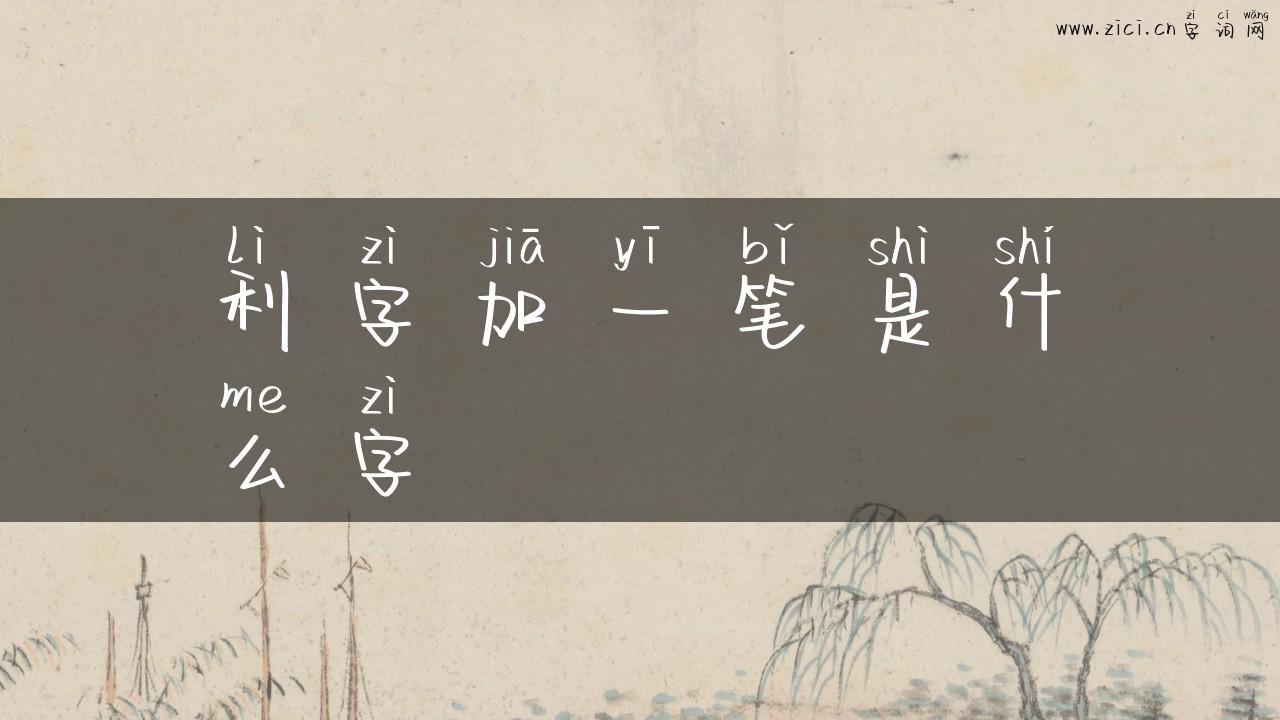 zì cí wǎng
www.zici.cn 字词网
lì zì jiā yī bǐ shì shí
利字加一笔是什
me zì
么字